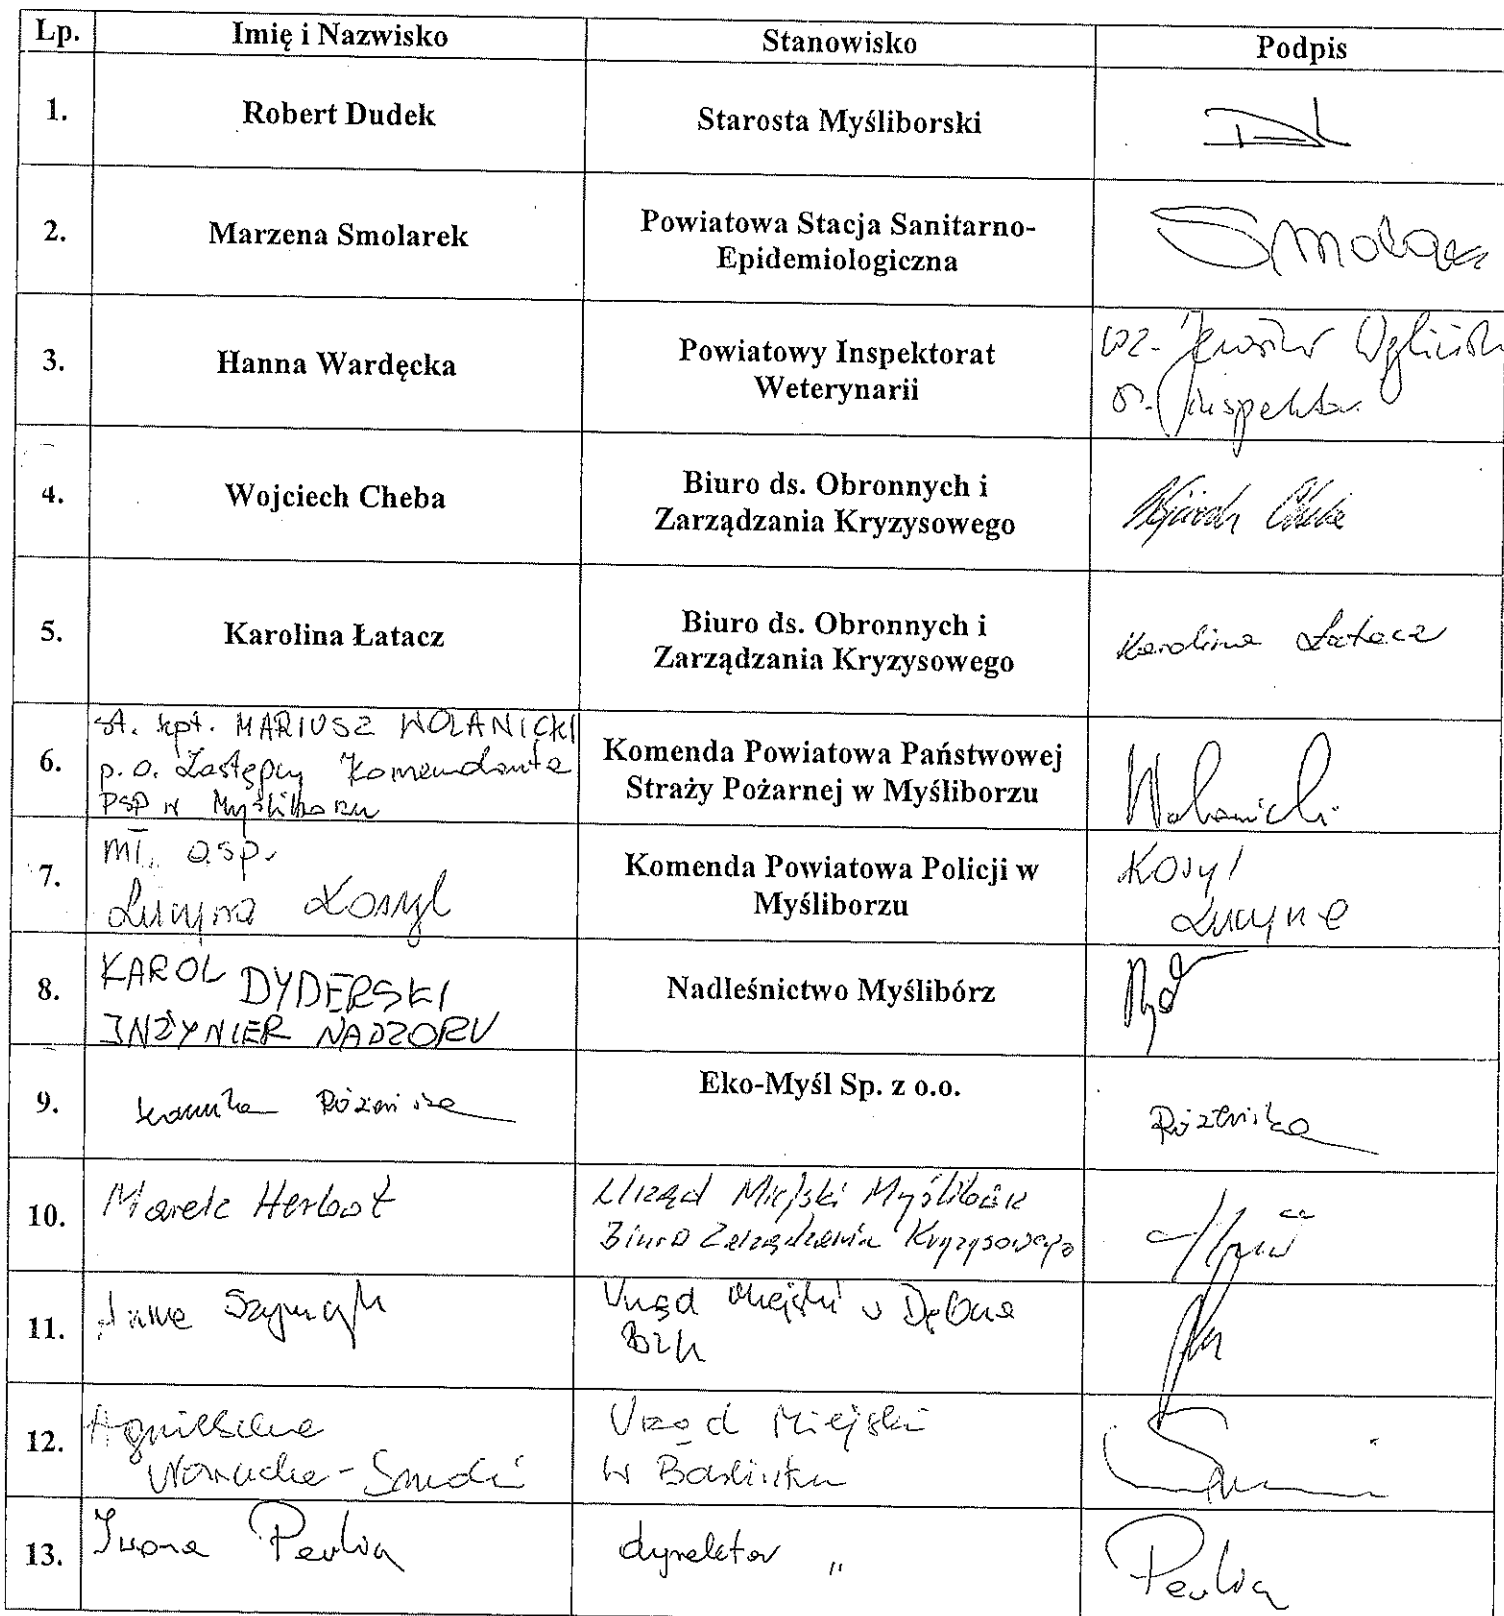 Lp. Imię i Nazwisko Stanowisko Podpis
1. Robert Dudek Starosta Myśliborski
2. Marzena Smolarek Powiatowa Stacja Sanitarno-
Epidemiologiczna
Smolarek
3. Hanna Wardęcka Powiatowy Inspektorat
Weterynarii
wz.
inspektor
4. Wojciech Cheba Biuro ds. Obronnych i
Zarządzania Kryzysowego
Wojciech Cheba
5. Karolina Łatacz Biuro ds. Obronnych i
Zarządzania Kryzysowego
Karolina Łatacz
6. st. kpt. MARIUSZ WOLANICKI
p.o. Zastępcy Komendanta
PSP w Myśliborzu
Komenda Powiatowa Państwowej
Straży Pożarnej w Myśliborzu
Wolanicki
7. mł. asp.
Lucyna
Komenda Powiatowa Policji w
Myśliborzu
Lucyna
8. KAROL DYDERSKI
INŻYNIER NADZORU
Nadleśnictwo Myślibórz
9. Eko-Myśl Sp. z o.o.
10. Marek Herbot
Urząd Miejski Myślibórz
Biuro Zarządzania Kryzysowego
11. Szymczyk
Urząd Miejski w Dębnie
BZK
12. Agnieszka
Urząd Miejski
w Barlinku
13. Iwona dyrektor "